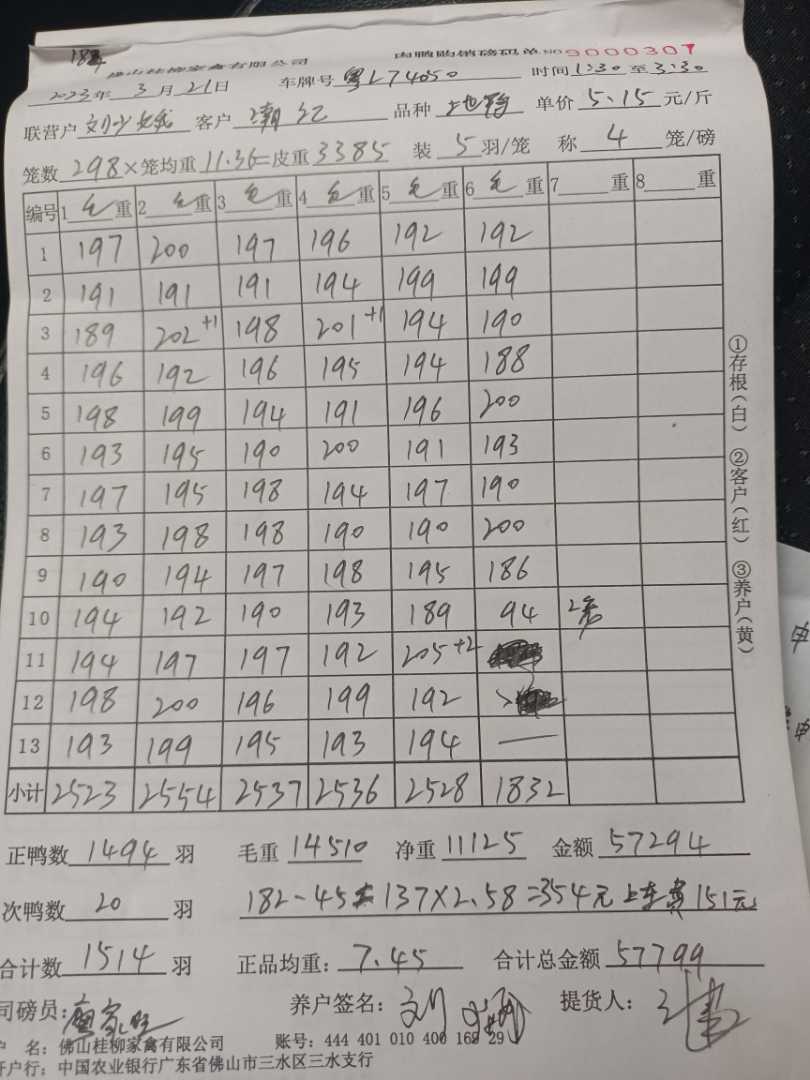 佛山桂柳家禽有限公司 肉鸭购销磅码单 NO 9000307
2023年 3月 21日 车牌号 粤L74050 时间 1:30 至 3:30
联营户 刘 客户 潮红 品种 土地鸭 单价 5.15 元/斤
笼数 298 × 笼均重 11.36 = 皮重 3385 装 5 羽/笼 称 4 笼/磅
编号 1 毛 重 2 毛 重 3 毛 重 4 毛 重 5 毛 重 6 毛 重 7 重 8 重
1 197 200 197 196 192 192
2 191 191 191 194 199 199
3 189 202+1 198 201+1 194 190
4 196 192 196 195 194 188
5 198 199 194 191 196 200
6 193 195 190 200 191 193
7 197 195 198 194 197 190
8 193 198 198 190 190 200
9 190 194 197 198 195 186
10 194 192 190 193 189 94 2笼
11 194 197 197 192 205+2
12 198 200 196 199 192
13 193 199 195 193 194 —
小计 2523 2554 2537 2536 2528 1832
正鸭数 1494 羽 毛重 14510 净重 11125 金额 57294
次鸭数 20 羽 182-45=137×2.58=354元 上车费151元
合计数 1514 羽 正品均重: 7.45 合计总金额 57799
司磅员: 养户签名: 刘 提货人:
户 名: 佛山桂柳家禽有限公司 账号: 444 401 010 400 169 29
开户行: 中国农业银行广东省佛山市三水区三水支行
①存根(白) ②客户(红) ③养户(黄)